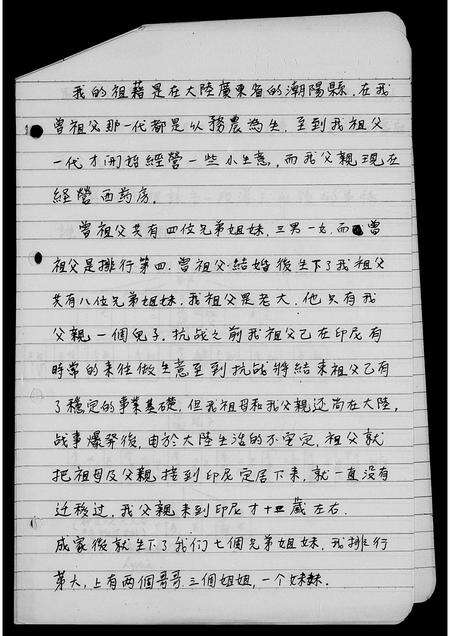 我的祖藉是在大陸廣東省的潮陽縣，在我
曾祖父那一代都是以務農為生，至到我祖父
一代才開始經營一些小生意，而我父親現在
經營西药房。
曾祖父共有四位兄弟姐妹，三男一女，而曾
祖父是排行第四，曾祖父結婚後生下了我祖父
共有八位兄弟姐妹，我祖父是老大，他只有我
父親一個兒子，抗战之前我祖父已在印尼有
時常的来往做生意至到抗战將結束祖父已有
了穩定的事業基礎，但我祖母和我父親还尚在大陸，
战事爆發後，由於大陸生活的不安定，祖父就
把祖母及父親接到印尼定居下来，就一直没有
迁移过，我父親来到印尼才十五歲左右．
成家後就生下了我们七個兄弟姐妹，我排行
第六，上有两個哥哥三個姐姐，一个妹妹．